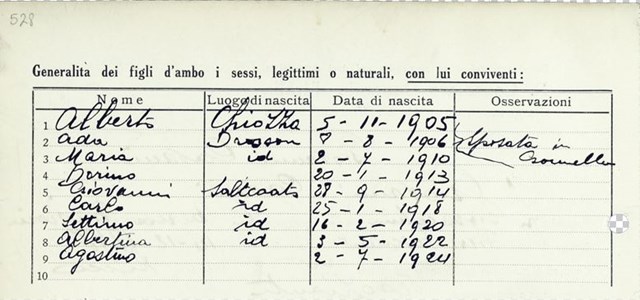 528
Generalità dei figli d'ambo i sessi, legittimi o naturali, con lui conviventi:
Nome Luogo di nascita Data di nascita Osservazioni
1 Alberto Chiozza 5 - 11 - 1905
2 Ada 7 - 8 - 1906 Sposata in
3 Maria id 2 - 7 - 1910
4 Dorino 20 - 1 - 1913
5 Giovanni Saltcoats 27 - 9 - 1914
6 Carlo id 25 - 1 - 1918
7 Settimo id 16 - 2 - 1920
8 Albertina id 3 - 5 - 1922
9 Agostino 2 - 7 - 1924
10